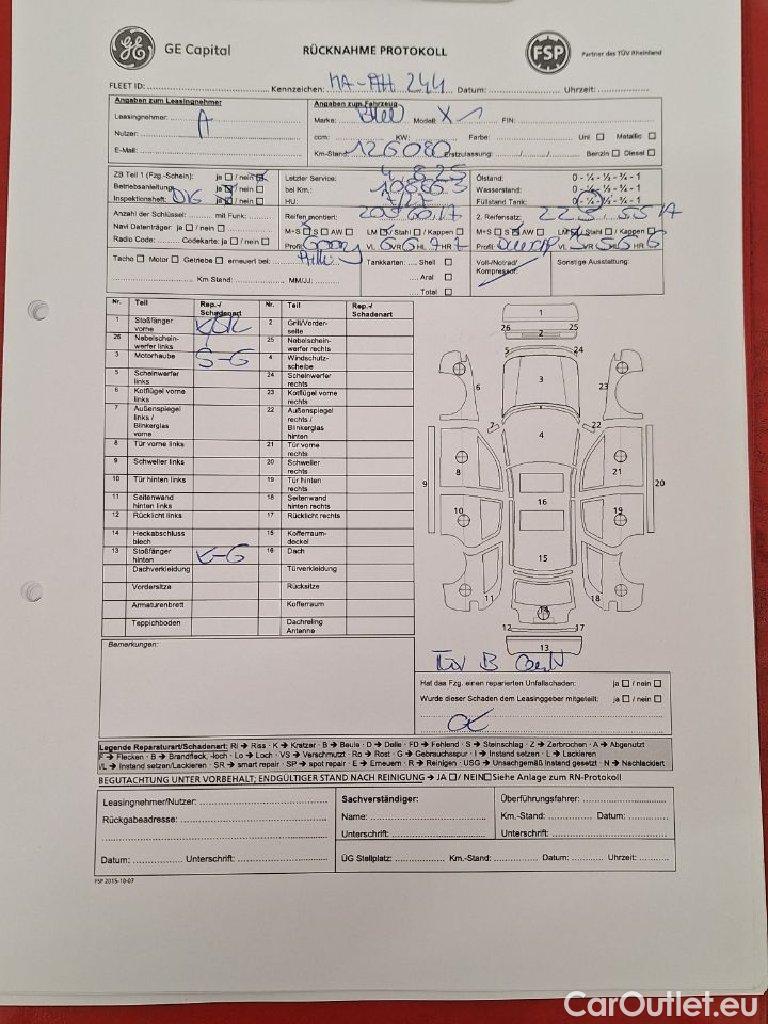 GE Capital
RÜCKNAHME PROTOKOLL
FSP
Partner des TÜV Rheinland
FLEET ID: Kennzeichen: MA-AH 244 Datum: Uhrzeit:
Angaben zum Leasingnehmer
Leasingnehmer: A
Nutzer:
E-Mail:
Angaben zum Fahrzeug
Marke: Modell: X-1 FIN:
ccm: KW: Farbe: Uni ☐ Metallic ☐
Km-Stand: 126080 Erstzulassung: Benzin ☐ Diesel ☐
ZB Teil 1 (Fzg.-Schein): ja ☐ / nein ☒
Betriebsanleitung: ja ☒ nein ☐
Inspektionsheft: ja ☒ nein ☐
Letzter Service: 4.8.25
bei Km.: 108863
HU: 7/27
Ölstand: 0 - ¼ - ½ - ¾ - 1
Wasserstand: 0 - ¼ - ½ - ¾ - 1
Füllstand Tank: 0 - ¼ - ½ - ¾ - 1
Anzahl der Schlüssel: mit Funk:
Navi Datenträger: ja ☐ / nein ☐
Radio Code: Codekarte: ja ☐ / nein ☐
Reifen montiert: 205 60.17
M+S ☐ S ☐ AW ☐ LM ☐ / Stahl ☐ / Kappen ☐
Profil: VL 6 VR 6 HL 7 HR 7
2. Reifensatz: 225 55 17
M+S ☐ S ☒ AW ☐ LM ☐ / Stahl ☐ / Kappen ☐
Profil: VL 5 VR 5 HL 6 HR 6
Tacho ☐ Motor ☐ Getriebe ☐ erneuert bei:
Km Stand: MM/JJ:
Tankkarten: Shell ☐
Aral ☐
Total ☐
Voll-/Notrad/
Kompressor:
Sonstige Ausstattung:
Nr. Teil Rep.-/ Schadenart Nr. Teil Rep.-/ Schadenart
1 Stoßfänger vorne 2 Grill/Vorderseite
26 Nebelscheinwerfer links 25 Nebelscheinwerfer rechts
3 Motorhaube S-G 4 Windschutzscheibe
5 Scheinwerfer links 24 Scheinwerfer rechts
6 Kotflügel vorne links 23 Kotflügel vorne rechts
7 Außenspiegel links / Blinkerglas vorne 22 Außenspiegel rechts / Blinkerglas hinten
8 Tür vorne links 21 Tür vorne rechts
9 Schweller links 20 Schweller rechts
10 Tür hinten links 19 Tür hinten rechts
11 Seitenwand hinten links 18 Seitenwand hinten rechts
12 Rücklicht links 17 Rücklicht rechts
14 Heckabschluss blech 15 Kofferraumdeckel
13 Stoßfänger hinten K-G 16 Dach
Dachverkleidung Türverkleidung
Vordersitze Rücksitze
Armaturenbrett Kofferraum
Teppichboden Dachreling Antenne
1
26 2 25
5 24
6 3 23
7 22
4
8 21
9 20
10 16 19
15
11 18
14
12 17
13
Bemerkungen:
Hat das Fzg. einen reparierten Unfallschaden: ja ☐ / nein ☐
Wurde dieser Schaden dem Leasinggeber mitgeteilt: ja ☐ / nein ☐
OK
Legende Reparaturart/Schadenart: RI → Riss · K → Kratzer · B → Beule · D → Delle · FD → Fehlend · S → Steinschlag · Z → Zerbrochen · A → Abgenutzt
F → Flecken · B → Brandfleck, -loch · Lo → Loch · VS → Verschmutzt · Ro → Rost · G → Gebrauchsspur · I → Instand setzen · L → Lackieren
I/L → Instand setzen/Lackieren · SR → smart repair · SP → spot repair · E → Erneuern · R → Reinigen · USG → Unsachgemäß Instand gesetzt · N → Nachlackiert
BEGUTACHTUNG UNTER VORBEHALT; ENDGÜLTIGER STAND NACH REINIGUNG → JA ☐ / NEIN ☐ Siehe Anlage zum RN-Protokoll
Leasingnehmer/Nutzer:
Rückgabeadresse:
Datum: Unterschrift:
Sachverständiger:
Name:
Unterschrift:
Überführungsfahrer:
Km.-Stand: Datum:
Unterschrift:
ÜG Stellplatz: Km.-Stand: Datum: Uhrzeit:
FSP 2015-10-07
CarOutlet.eu